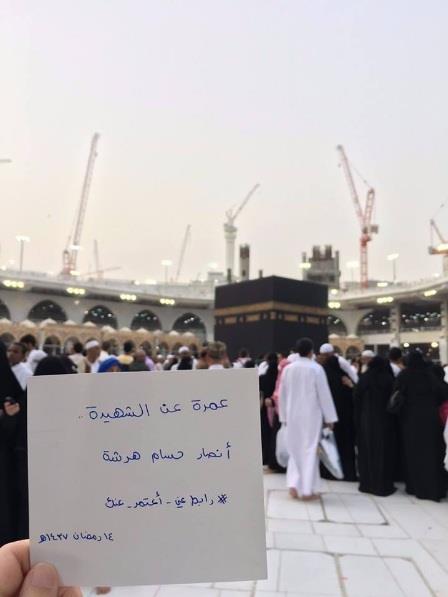 عمرة عن الشهيدة ..
أنصار حسام هرشة
# رابط عني - أعتمر - عنك
١٤ رمضان ١٤٣٧هـ